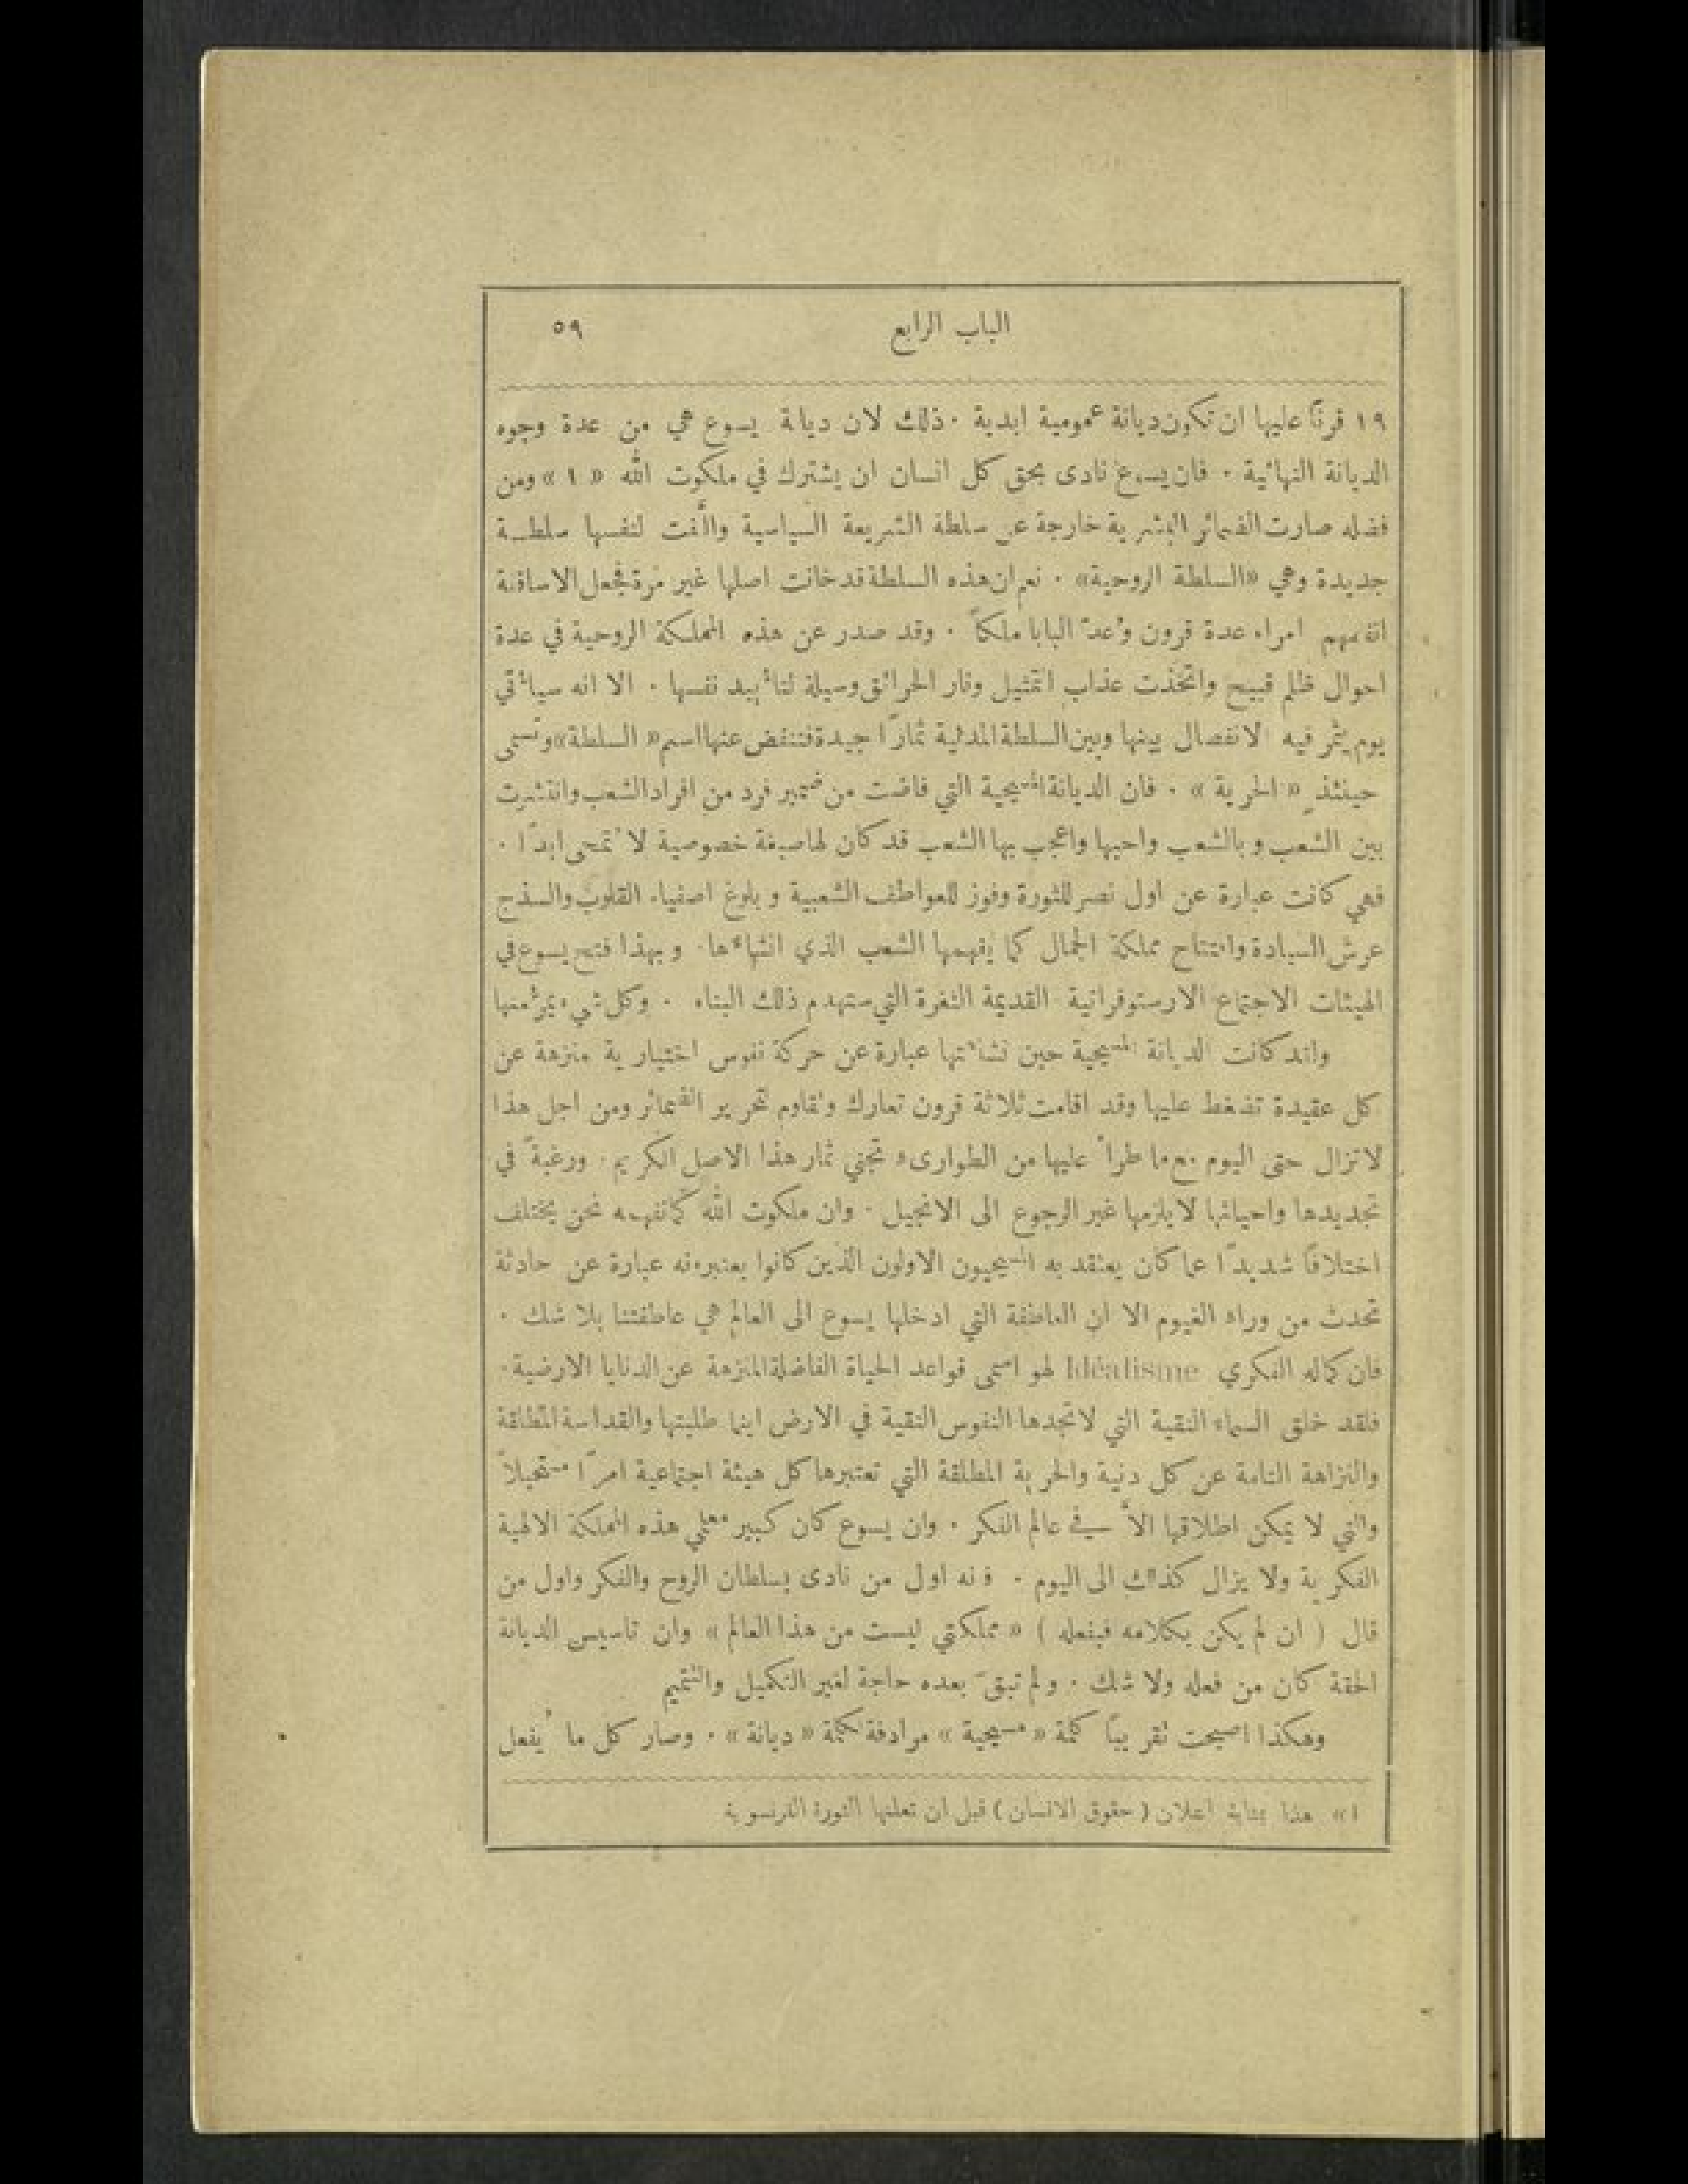 الباب الرابع ٥٩
١٩ قرنًا عليها ان تكون ديانة عمومية ابدية . ذلك لان ديانة يسوع هي من عدة وجوه
الديانة النهائية . فان يسوع نادى بحق كل انسان ان يشترك في ملكوت الله « ١ » ومن
فضله صارت الضمائر البشرية خارجة عن سلطة الشريعة السياسية والَّفت لنفسها سلطة
جديدة وهي «السلطة الروحية» . نعم ان هذه السلطة قد خانت اصلها غير مرة فجعل الاساقفة
انفسهم امراء عدة قرون وعدّ البابا ملكاً . وقد صدر عن هذه المملكة الروحية في عدة
احوال ظلم قبيح واتخذت عذاب التمثيل ونار الحرائق وسيلة لتأييد نفسها . الا انه سيأتي
يوم يثمر فيه الانفصال بينها وبين السلطة المدنية ثمارًا جيدة فتنفض عنها اسم « السلطة » وتسمى
حينئذٍ « الحرية » . فان الديانة المسيحية التي فاضت من ضمير فرد من افراد الشعب وانتشرت
بين الشعب وبالشعب واحبها واعجب بها الشعب قد كان لها صبغة خصوصية لا تُمحى ابدًا .
فهي كانت عبارة عن اول نصر للثورة وفوز للعواطف الشعبية وبلوغ اصفياء القلوب والسذج
عرش السيادة وافتتاح مملكة الجمال كما يفهمها الشعب الذي انشاءها . وبهذا فتح يسوع في
الهيئات الاجتماع الارستوقراتية القديمة الثغرة التي ستهدم ذلك البناء . وكل شيء يمرُّ منها
ولقد كانت الديانة المسيحية حين نشأتها عبارة عن حركة نفوس اختيارية منزهة عن
كل عقيدة تضغط عليها وقد اقامت ثلاثة قرون تعارك وتقاوم لتحرير الضمائر ومن اجل هذا
لا تزال حتى اليوم مع ما طرأ عليها من الطوارىء تجني ثمار هذا الاصل الكريم . ورغبةً في
تجديدها واحيائها لا يلزمها غير الرجوع الى الانجيل . وان ملكوت الله كما نفهمه نحن يختلف
اختلافًا شديدًا عما كان يعتقد به المسيحيون الاولون الذين كانوا يعتبرونه عبارة عن حادثة
تحدث من وراء الغيوم الا ان العاطفة التي ادخلها يسوع الى العالم هي عاطفتنا بلا شك .
فان كماله الفكري Idéalisme لهو اسمى قواعد الحياة الفاضلة المنزهة عن الدنايا الارضية .
فلقد خلق السماء النقية التي لا تجدها النفوس النقية في الارض اينما طلبتها والقداسة المطلقة
والنزاهة التامة عن كل دنية والحرية المطلقة التي تعتبرها كل هيئة اجتماعية امرًا مستحيلاً
والتي لا يمكن اطلاقها الاَّ في عالم الفكر . وان يسوع كان كبير معلمي هذه المملكة الالهية
الفكرية ولا يزال كذلك الى اليوم . فانه اول من نادى بسلطان الروح والفكر واول من
قال ( ان لم يكن بكلامه فبفعله ) « مملكتي ليست من هذا العالم » وان تاسيس الديانة
الحقة كان من فعله ولا شك . ولم تبقَ بعده حاجة لغير التكميل والتتميم
وهكذا اصبحت تقريبًا كلمة « مسيحية » مرادفة لكلمة « ديانة » . وصار كل ما يُفعل
١» هذا بمثابة اعلان ( حقوق الانسان ) قبل ان تعلنها الثورة الفرنسوية